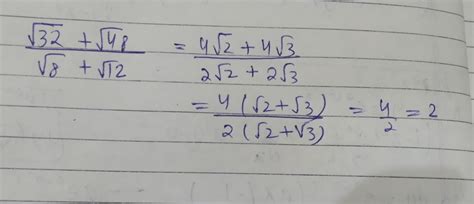 (√32 + √48)/(√8 + √12) = (4√2 + 4√3)/(2√2 + 2√3)
= 4(√2+√3)/2(√2+√3) = 4/2 = 2